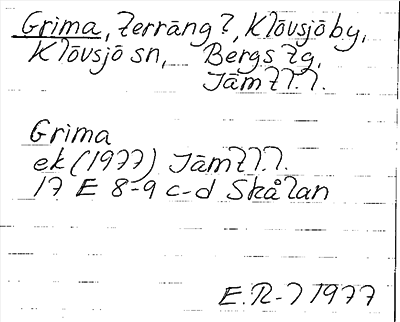 Grima, terräng?, Klövsjö by,
Klövsjö sn, Bergs tg,
Jämtl.l.
Grima
ek (1977) Jämtl.l.
17 E 8-9 c-d Skålan
E.R-l 1977